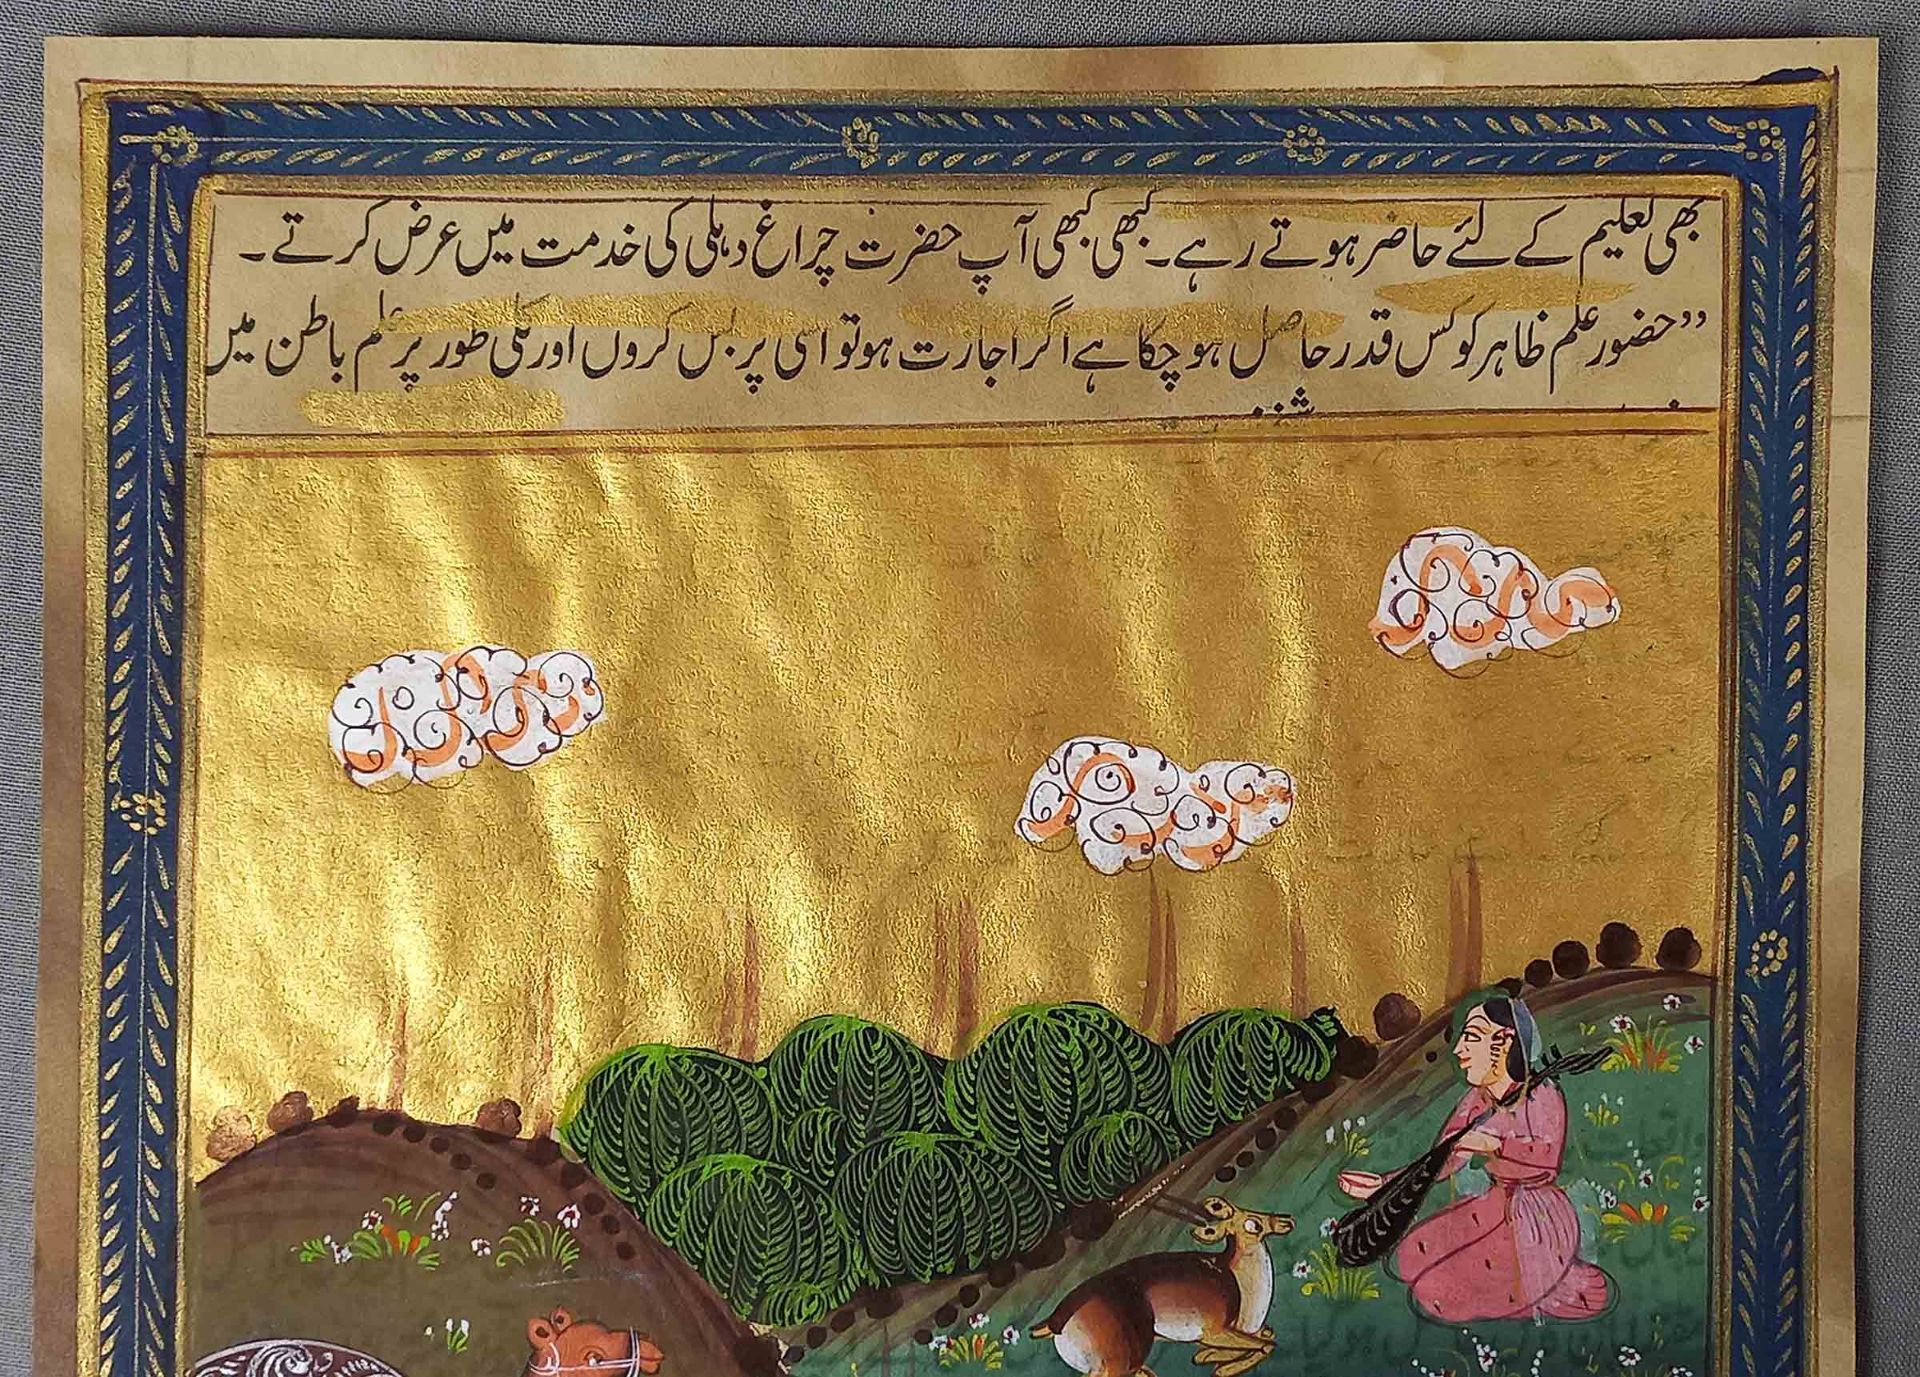 بھی تعلیم کے لئے حاضر ہوتے رہے۔ کبھی کبھی آپ حضرت چراغ دہلی کی خدمت میں عرض کرتے۔
”حضور علم ظاہر کو کس قدر حاصل ہو چکا ہے اگر اجازت ہو تو اسی پر بس کروں اور کلی طور پر علم باطن میں